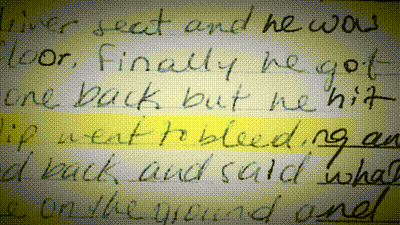 driver seat and he was
floor. Finally he got
one back but he hit
lip went to bleeding an
d back and said what
e on the ground and